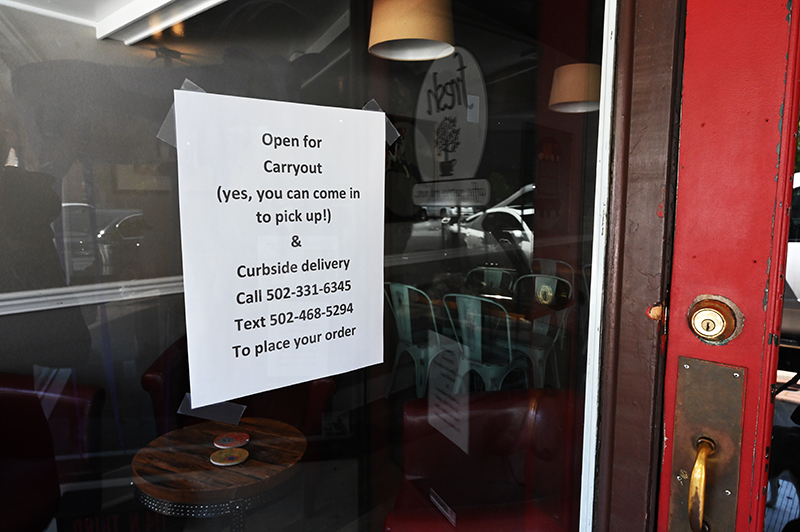 Open for
Carryout
(yes, you can come in
to pick up!)
&
Curbside delivery
Call 502-331-6345
Text 502-468-5294
To place your order
fresh